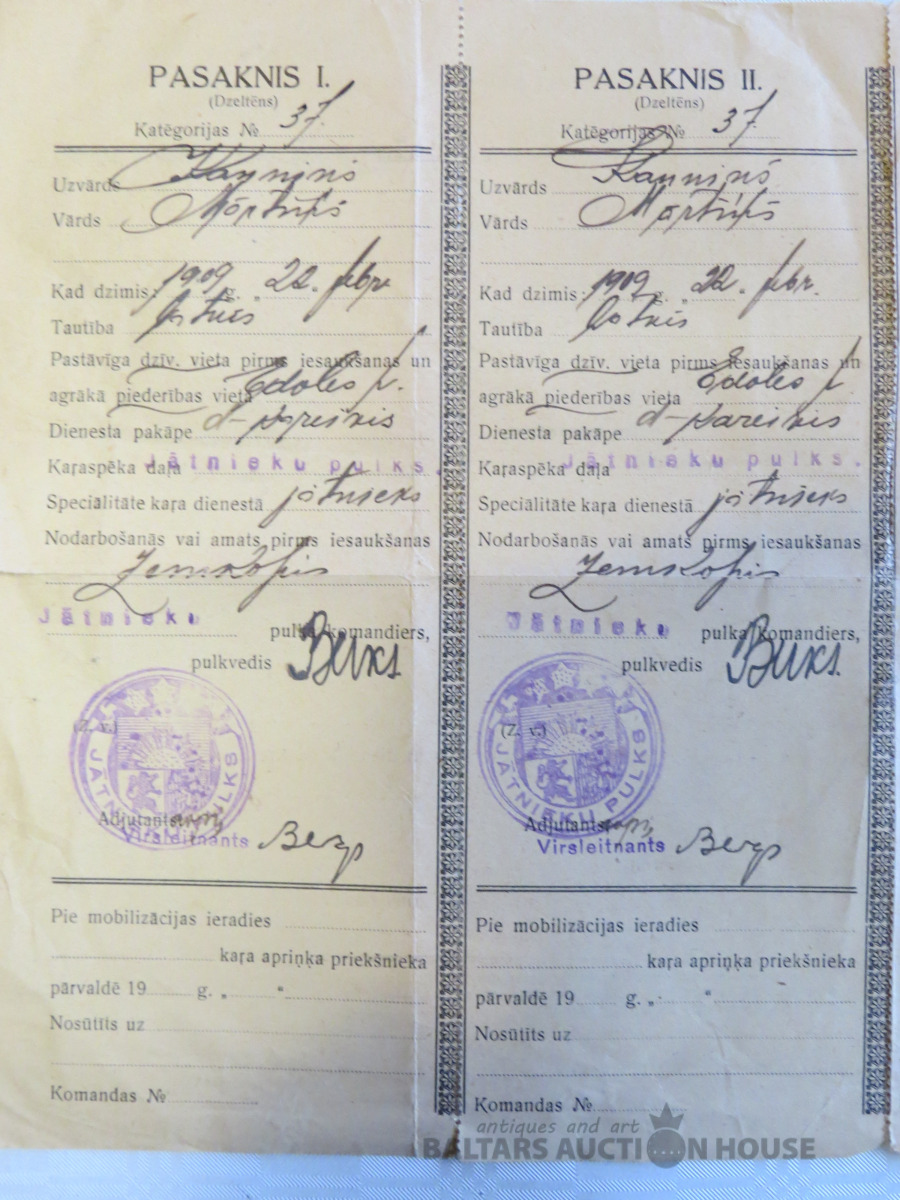 PASAKNIS I.
(Dzeltēns)
Katēgorijas № 37.
Uzvārds Kauniņš
Vārds Mārtiņš
Kad dzimis: 1909 g. „ 22. febr.
Tautība latvis
Pastāvīga dzīv. vieta pirms iesaukšanas un
agrākā piederības vieta Ēdoles p.
Dienesta pakāpe d-kareivis
Kaŗaspēka daļa Jātnieku pulks.
Speciālitāte kaŗa dienestā jātnieks
Nodarbošanās vai amats pirms iesaukšanas
Zemkopis
Jātnieku pulka komandiers,
pulkvedis Buks.
(Z. v.)
JĀTNIEKU PULKS
Adjutants
Virsleitnants
Pie mobilizācijas ieradies
kaŗa apriņķa priekšnieka
pārvaldē 19 g. „ “
Nosūtīts uz
Komandas №
PASAKNIS II.
(Dzeltēns)
Katēgorijas № 37.
Uzvārds Kauniņš
Vārds Mārtiņš
Kad dzimis: 1909 g. „ 22. febr.
Tautība latvis
Pastāvīga dzīv. vieta pirms iesaukšanas un
agrākā piederības vieta Ēdoles p.
Dienesta pakāpe d-kareivis
Kaŗaspēka daļa Jātnieku pulks.
Speciālitāte kaŗa dienestā jātnieks
Nodarbošanās vai amats pirms iesaukšanas
Zemkopis
Jātnieku pulka komandiers,
pulkvedis Buks.
(Z. v.)
JĀTNIEKU PULKS
Adjutants
Virsleitnants
Pie mobilizācijas ieradies
kaŗa apriņķa priekšnieka
pārvaldē 19 g. „ “
Nosūtīts uz
Komandas №
antiques and art
BALTARS AUCTION HOUSE